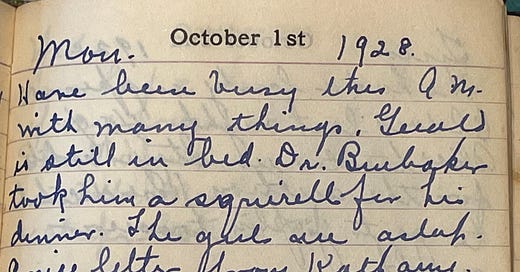 October 1st
Mon. 1928.
Have been busy this A M.
with many things. Gerald
is still in bed. Dr. Brubaker
took him a squirell for his
dinner. The girls are asleep.
letter from